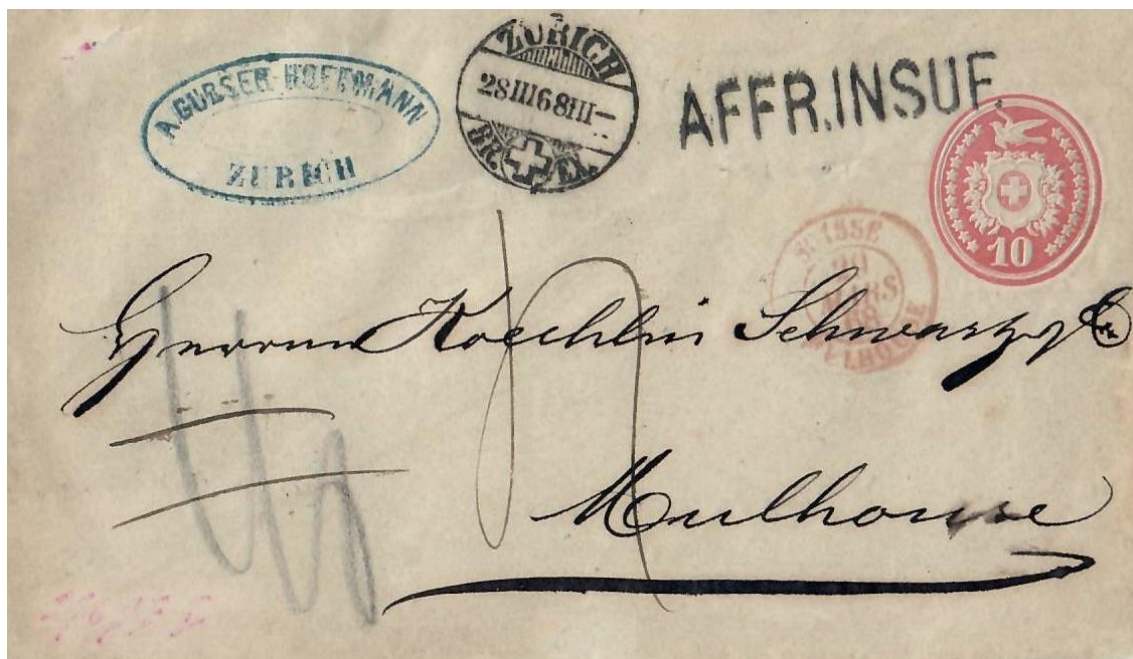 A. GUBSER-HOFFMANN
ZURICH
ZÜRICH
28 III 68 III-
BR. EX.
AFFR. INSUF.
10
SUISSE
MARS
68
MULHOUSE
Herren Koechlin Schwartz & Co
Mulhouse